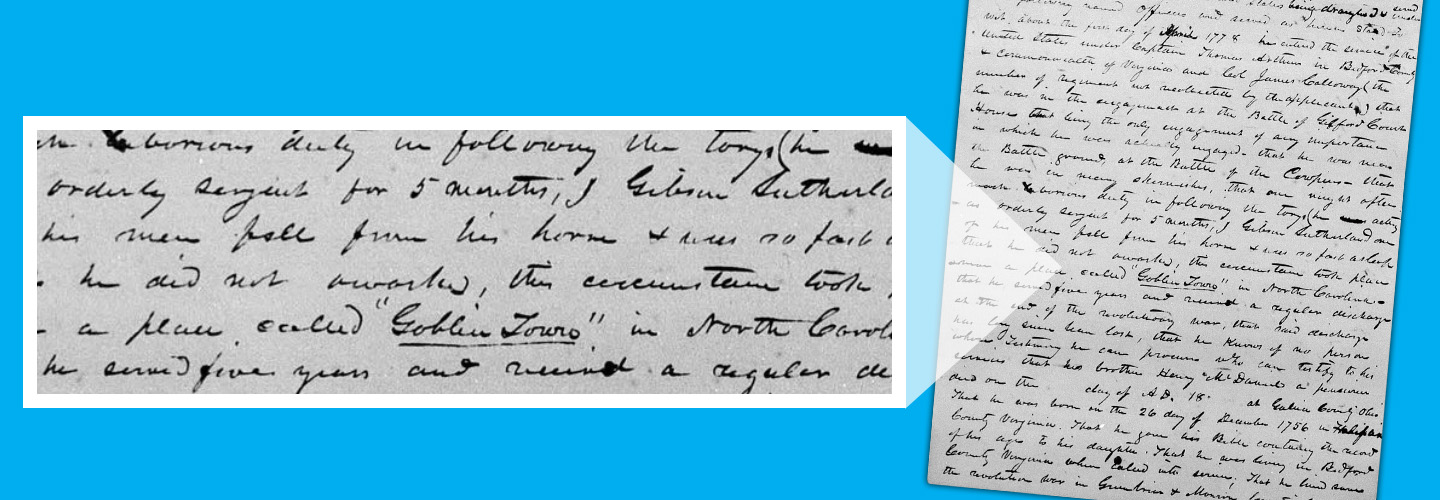 laborious duty in following the torys (he
orderly sergent for 5 months, J Gibson Sutherla
his men fell from his horse & was so fast a
he did not awake, this circumstance took
a place called "Goblin Towns" in North Carol
he served five years and received a regular de
following named officers and served as herein stated to
wit. about the first day of April 1778 he entered the service of the
United States under Captain Thomas Arthurs in Bedford County
& commonwealth of Virginia and Col James Calloway (the
number of regiment not recollected by the applicant) that
he was in the engagement at the Battle of Gifford Court
House that being the only engagement of any importance
in which he was actually engaged - that he was near
the Battle ground, at the Battle of the Cowpens - that
he was in many skermishes, that one night after
much laborious duty in following the torys (he acting
as orderly sergent for 5 months, J Gibson Sutherland one
of his men fell from his horse & was so fast asleep
that he did not awake, this circumstance took place
a place called "Goblin Towns" in North Carolina -
that he served five years and received a regular discharge
at the end of the revolutionary war, that said discharge
has long since been lost, that he knows of no person
whose Testimony he can procure who can testify to his
services that his brother Henry McDaniel a pensioner
and on the day of A.D. 18 at Galia County Ohio
That he was born on the 26 day of December 1756 in Halifax
County Virginia. That he gave his Bible containing the record
of his ages to his daughter. That he was living in Bedford
County Virginia when called into service; That he lived since
the revolution war in Greenbrier & Monroe